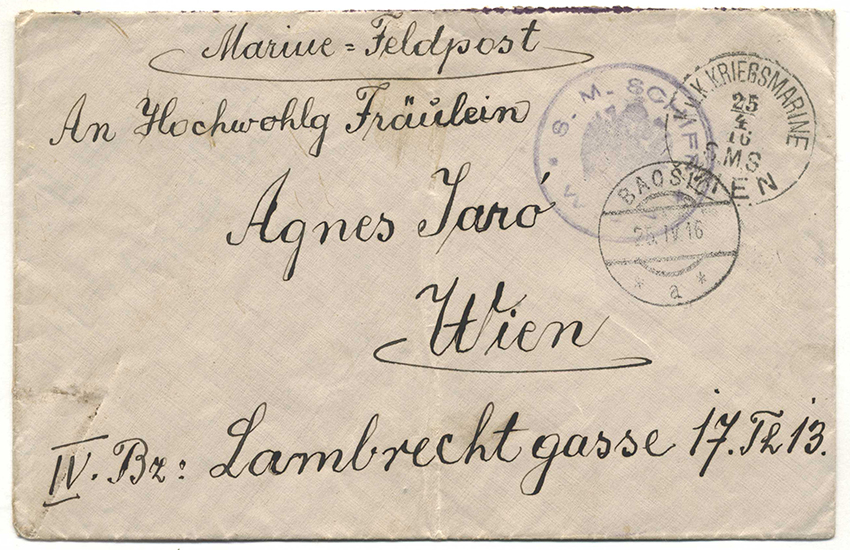 Marine = Feldpost
An Hochwohlg Fräulein
Agnes Jaró
Wien
IV. Bz: Lambrechtgasse 17. Th 13.
S. M. SCHIFF
K. KRIEGSMARINE
25
4.
16
SMS
WIEN
BAOŠIĆI
25.IV.16
* a *